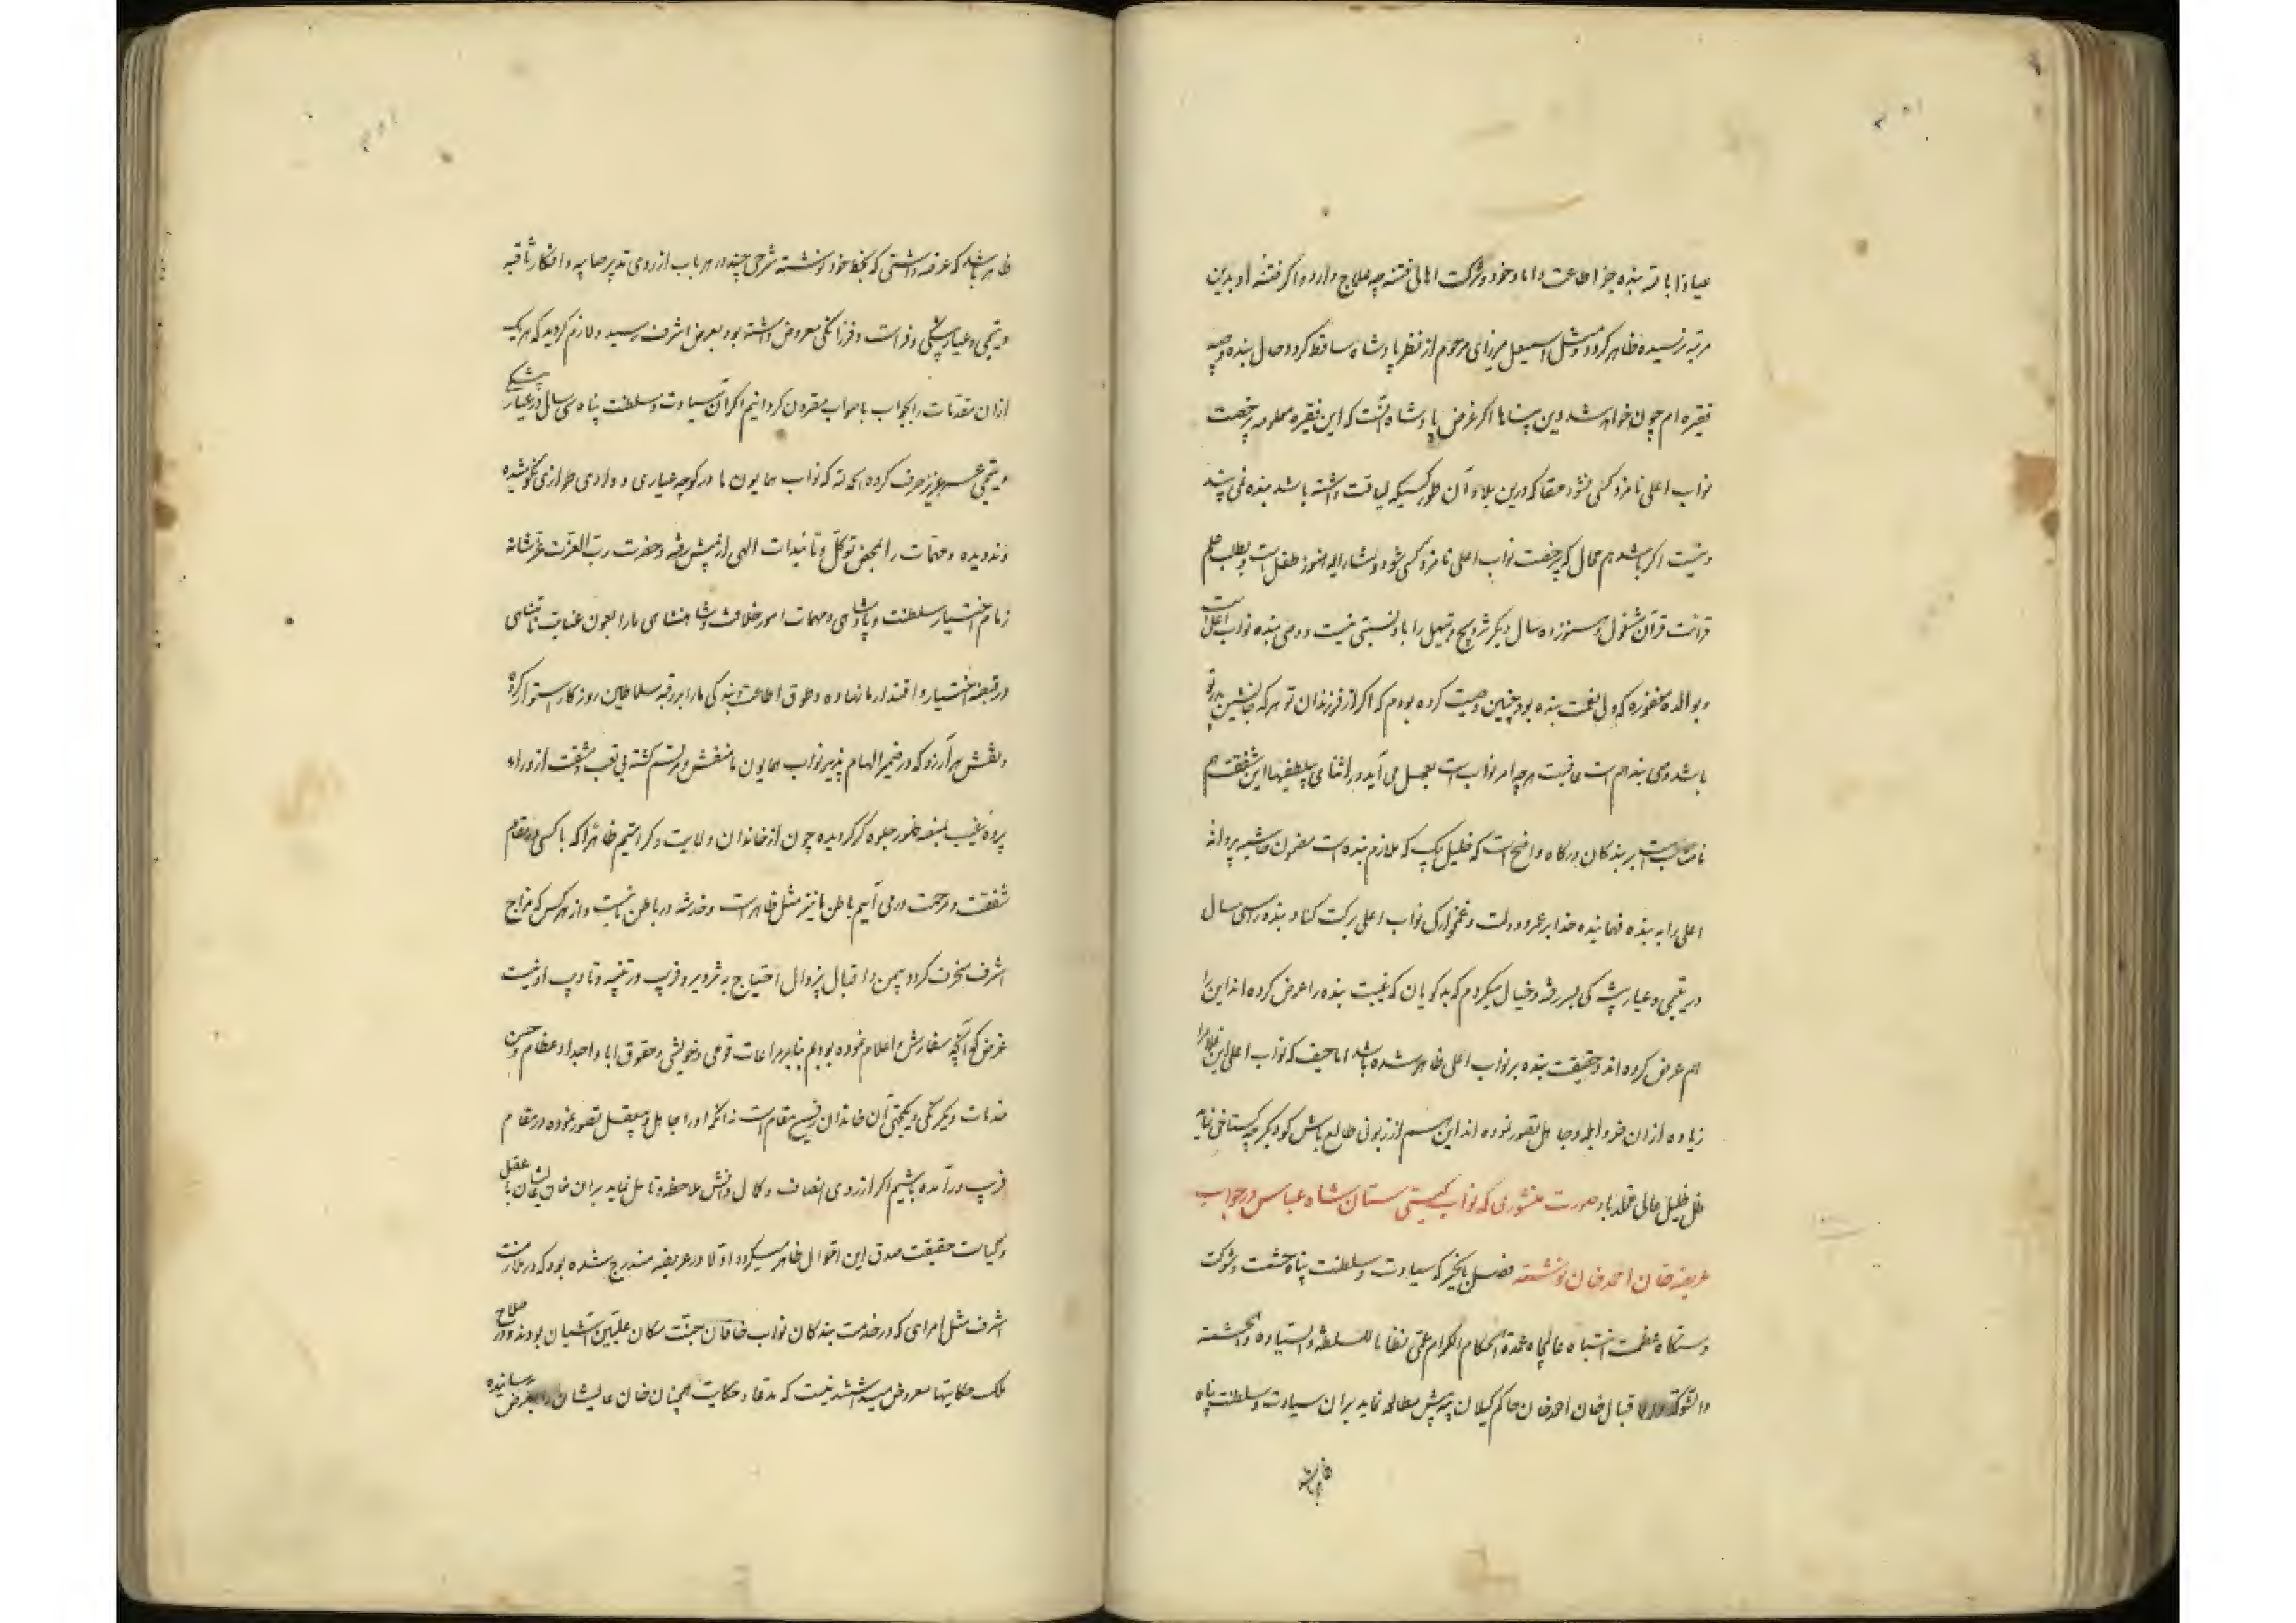 عیاذا بالله بنده جز اطاعت داماد خود و شرکت اهالی فتنه چه علاج دارد و اگر فتنه او بدین
مرتبه نرسیده ظاهر کردد و مثل اسمعیل میرزای مرحوم از نظر پادشاه ساقط کردد حال بنده وصبیه
فقیره ام چون خواهد شد دین پناها اکر غرض پادشاه آنست که این فقیره معلومه برخصت
نواب اعلی نامزد کسی نشود حقا که درین بلاد آن طور کسیکه لیاقت داشته باشد بنده نمی بیند
و نیست اکر باشد هم محال که بیرخصت نواب اعلی نامزد کسی شود و مشار الیه هنوز طفل است و بطلب علم
قرائت قرآن مشغول و هنوز ده سال دیکر تزویج و تاهل را با و نسبتی نیست و وصی بنده نواب اعلی است
و بوالده مغفوره که ولی نعمت بنده بود چنین وصیت کرده بودم که اکر از فرزندان تو هر که جانشین پدر تو
باشد وصی بنده هم است عاقبت هر چه امر نواب است بعمل می آید در اثنای بی لطفیها این شفقت هم
نامناسب است بر بندکان درکاه واضح است که خلیل بیک که ملازم بنده است مضمون حاشیه پروانه
اعلی را به بنده فهمانیده خدا بر عمر و دولت و غمخوارکی نواب اعلی برکت کناد بنده را سی سال
در یتیمی و عیار پیشه کی بسر رفته و خیال میکردم که بدکویان که غیبت بنده را عرض کرده اند این را
هم عرض کرده اند و حقیقت بنده بر نواب اعلی ظاهر شده باشد اما حیف که نواب اعلی این غلام را
زیاده از ان خر و ابله و جاهل تصور نموده اند این هم از زبونی طالع باش کو دیکر چه کستاخی نماید
ظل ظلیل عالی مخلد باد صورت منشوری که نواب کیتی ستان شاه عباس در جواب
عریضه خان احمد خان نوشته فصل بالخیر که سیادت و سلطنت پناه حشمت و شوکت
دستکاه عظمت انتباه عالیجاه عمدة الحکام الکرام علی نظاما للسلطنة والسیاده والحشمة
والشوکة والاقبال خان احمد خان حاکم کیلان به پیش مطالعه نماید بران سیادت و سلطنت پناه
ظاهر باشد
ظاهر باشد که عرضه داشتی که بخط خود نوشته شرحی چند در هر باب از روی تدبیر صایبه و افکار ثاقبه
و یتیمی و عیار پیشکی و فراست و فرزانکی معروض داشته بود بعرض اشرف رسید و لازم کردید که هر یک
از ان مقدمات را بجواب با صواب مقرون کردانیم اکر آن سیادت و سلطنت پناه سی سال در عیار پیشکی
و یتیمی عمر عزیز صرف کرده بحمدالله که نواب همایون ما در کوچه عیاری و وادی طراری نکوشیده
و ندویده و مهمات را بمحض توکل و تائیدات الهی از پیش رفته و حضرت رب العزت عز شانه
زمام اختیار سلطنت و پادشاهی و مهمات امور خلافت و شاهنشاهی ما را بعون عنایت نامتناهی
در قبضه اختیار و اقتدار ما نهاده و طوق اطاعت و بندکی ما را بر رقبه سلاطین روزکار استوار کرده
و نقش هر آرزو که در ضمیر الهام پذیر نواب همایون ما منقش و مرتسم کشته بی تعب و مشقت از وراء
پرده غیب بمنصه ظهور جلوه کر کردیده چون از خاندان ولایت و کرامتیم ظاهرا که با کسی در مقام
شفقت و مرحمت در می آییم باطن ما نیز مثل ظاهر است و خدشه در باطن ما نیست و از هر کس که مزاج
اشرف منحرف کردد بیمن اقبال بیزوال احتیاج به تزویر و فریب در تنبیه و تادیب او نیست
غرض که آنچه سفارش و اعلام نموده بودیم بنا بر مراعات قومی و خویشی و حقوق ابا و اجداد عظام و حسن
خدمات و یکرنکی و یکجهتی آن خاندان رفیع مقام است نه آنکه او را جاهل و بیعقل تصور نموده در مقام
فریب در آمده باشیم اکر از روی انصاف و کمال دانش ملاحظه و تامل نماید بران خان عالیشان با عقل
و کیاست حقیقت صدق این اقوال ظاهر میکردد اولا در عریضه مندرج شده بود که در ملازمت
اشرف مثل امرای که در خدمت بندکان نواب خاقان جنت مکان علیین آشیان بودند و در صلاح
ملک حکایتها معروض میداشتند نیست که مدعا و حکایت همچنان خان عالیشان را بعرض رسانیده